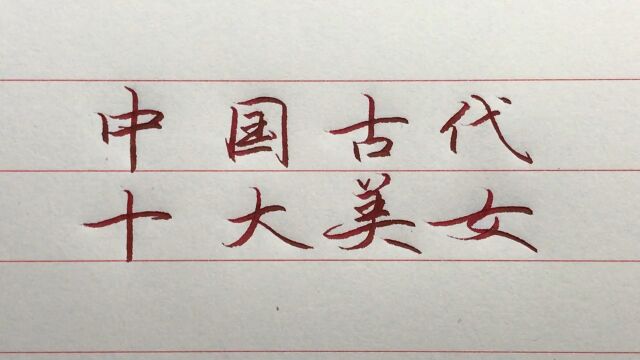 中国古代
十大美女